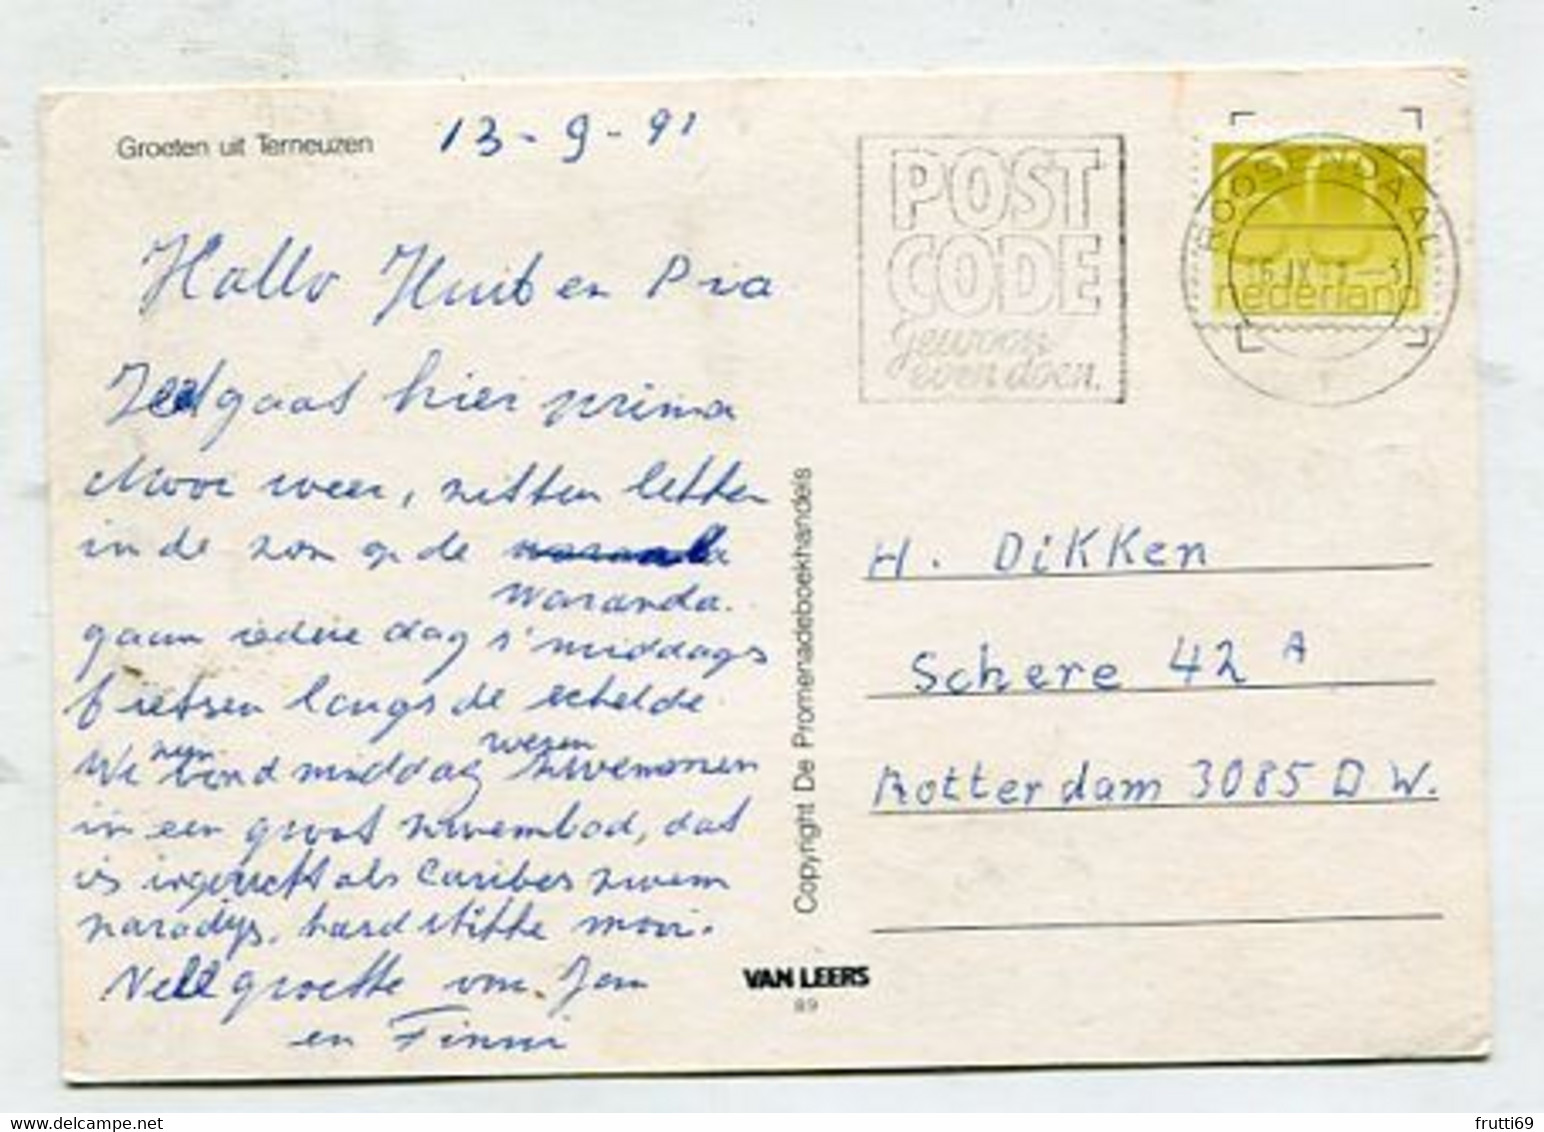 Groeten uit Terneuzen
13-9-91
Hallo Huib en Pia
gaat hier prima
Mooi weer, zitten lekker
in de zon op de
waranda.
gaan iedere dag s'middags
fietsen langs de schelde
We middag wezen zwemmen
in een groot zwembad, dat
is ingericht als Caribes zwem
paradijs, hardstikke mooi.
groette van Jan
en Finni
POST
CODE
gewoon
even doen.
ROOSENDAAL
nederland
Copyright De Promenadeboekhandels
VAN LEERS
89
H. Dikken
Schere 42 A
Rotterdam 3085 D W.
frutti69